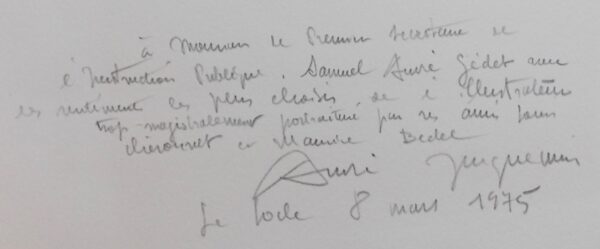 à Monsieur le Premier Secrétaire de
l'Instruction Publique. Samuel André Gédet avec
les sentiments les plus choisis de l'illustrateur
trop magistralement portraituré par ses amis Louis
Chéronnet et Maurice Bedel
André Jacquemin
Le Locle 8 mars 1975